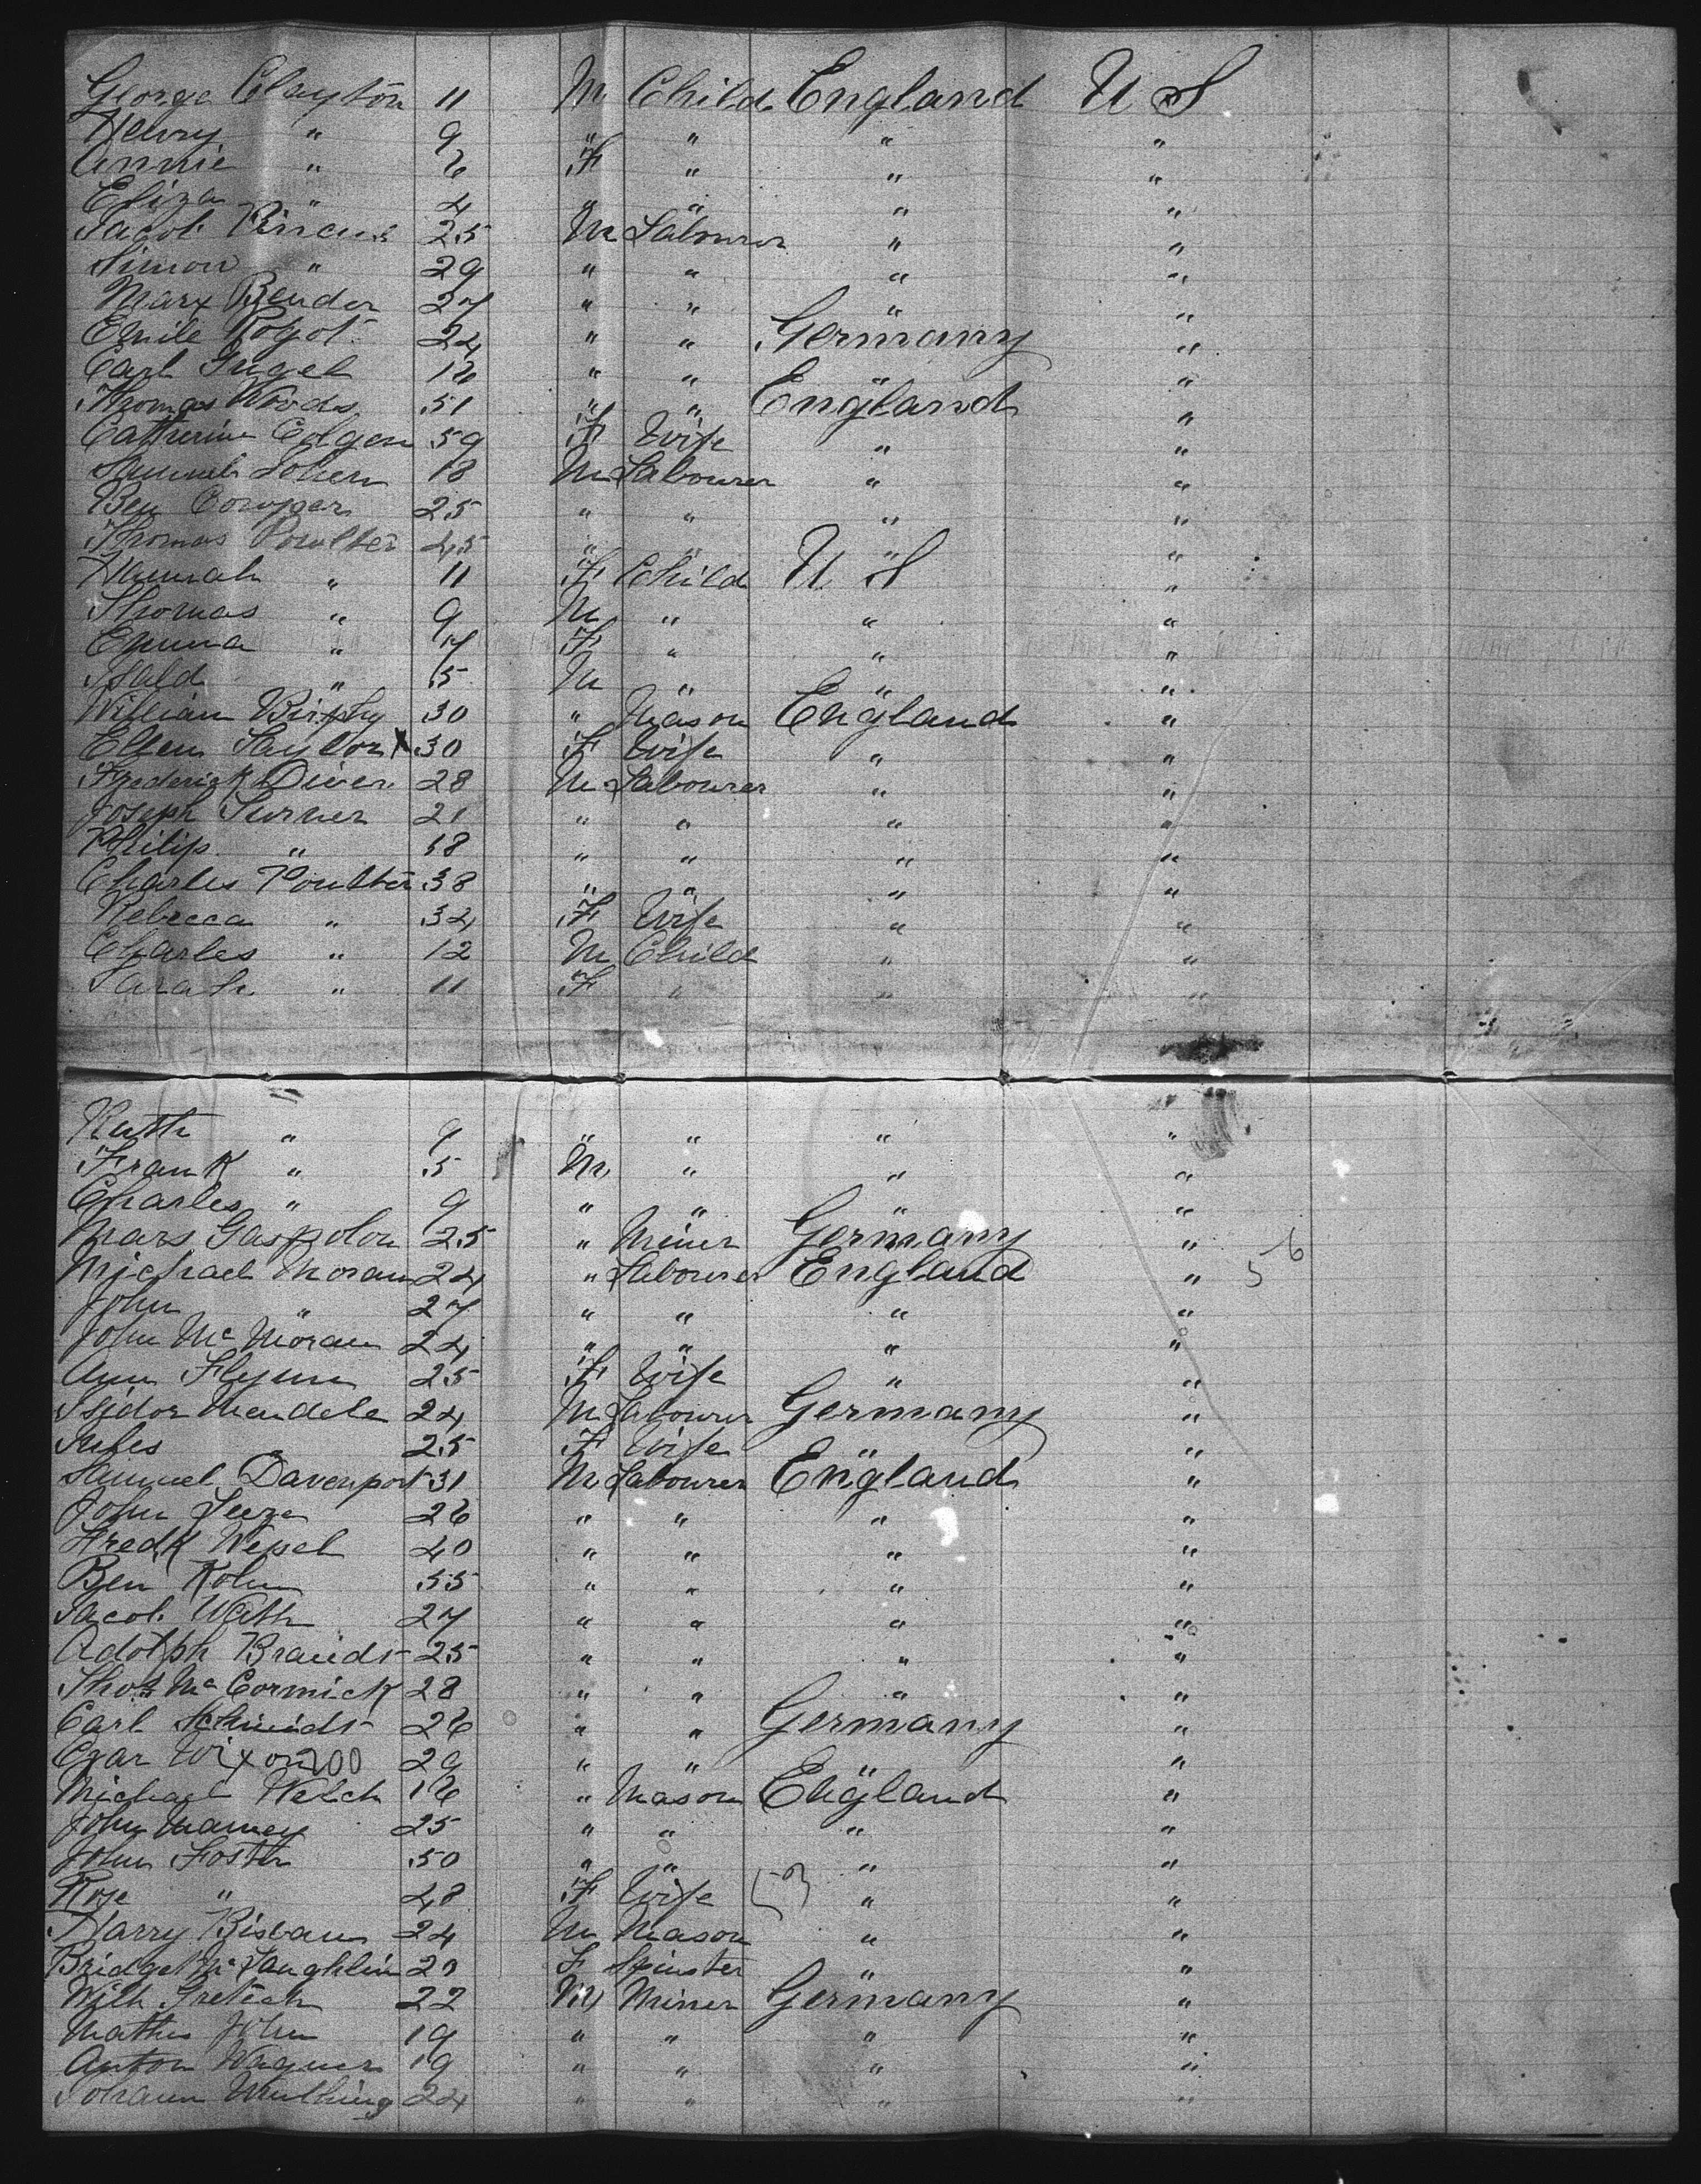 George Clayton 11 M Child England U S
Henry " 9 " " " "
Annie " 6 F " " "
Eliza " 4 " " " "
Jacob Pincus 25 M Labourer " "
Simon " 29 " " " "
Marx Bender 27 " " " "
Emile 24 " " Germany "
Carl 16 " " " "
Thomas Woods 51 " " England "
Catherine Colgan 59 F Wife " "
Samuel Cohen 18 M Labourer " "
Ben Cowper 25 " " " "
Thomas Poulter 45 " " " "
Hannah " 11 F Child U S "
Thomas " 9 M " " "
Emma " 7 F " " "
" 5 M " " "
William 30 " Mason England "
Ellen Taylor X 30 F Wife " "
Frederick Diver 28 M Labourer " "
Joseph Turner 21 " " " "
Philip " 18 " " " "
Charles Poulter 38 " " " "
Rebecca " 34 F Wife " "
Charles " 12 M Child " "
Sarah " 11 F " " "
Ruth " 9 " " " "
Frank " 5 M " " "
Charles " 9 " " " "
Mars Gaspolon 25 " Miner Germany "
Michael Moran 24 " Labourer England " 56
John " 27 " " " "
John Mc Moran 24 " " " "
Ann Flynn 25 F Wife " "
Isidor Mendele 24 M Labourer Germany "
Jules " 25 F Wife " "
Samuel Davenport 31 M Labourer England "
John 26 " " " "
Fredk 40 " " " "
Ben Kohn 55 " " " "
Jacob 27 " " " "
Adolph Brandt 25 " " " "
Thos Mc Cormick 28 " " " "
Carl Schmidt 26 " " Germany "
200 29 " " " "
Michael Welch 16 " Mason England "
John 25 " " " "
John Foster 50 " " " "
Rose " 48 F Wife " "
Harry 24 M Mason " "
Bridget Mc Laughlin 20 F Spinster " "
Wilh 22 M Miner Germany "
Mathis John 19 " " " "
Anton Wagner 19 " " " "
Johann 24 " " " "